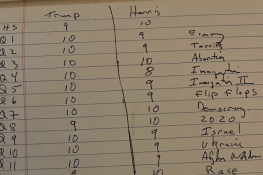 Trump Harris
HS 9 10
Q1 10 9 Economy
Q2 10 9 Tariffs
Q3 10 10 Abortion
Q4 10 8 Immigration
Q5 10 9 Immigration II
Q6 10 9 Flip Flops
Q7 10 10 Democracy
Q8 9 10 2020
Q9 10 9 Israel
Q10 10 9 Ukraine
Q11 10 9
9 10 Race